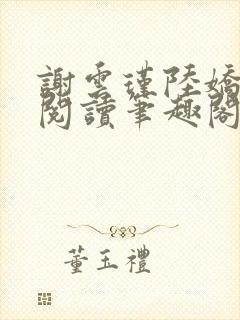 謝雲瑾陸嬌
閱讀筆趣閣
董玉禮